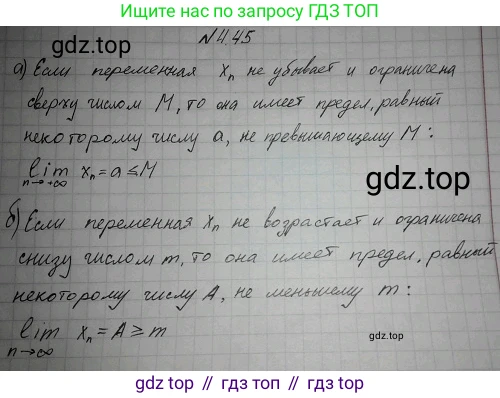 Ищите нас по запросу ГДЗ ТОП
№4.45
gdz.top
а) Если переменная xₙ не убывает и ограничена
сверху числом M, то она имеет предел, равный
некоторому числу a, не превышающему M:
lim xₙ = a ≤ M
n→+∞
gdz.top
б) Если переменная xₙ не возрастает и ограничена
снизу числом m, то она имеет предел, равный
некоторому числу A, не меньшему m:
lim xₙ = A ≥ m
n→∞
gdz.top
gdz.top // гдз.top // гдз.топ